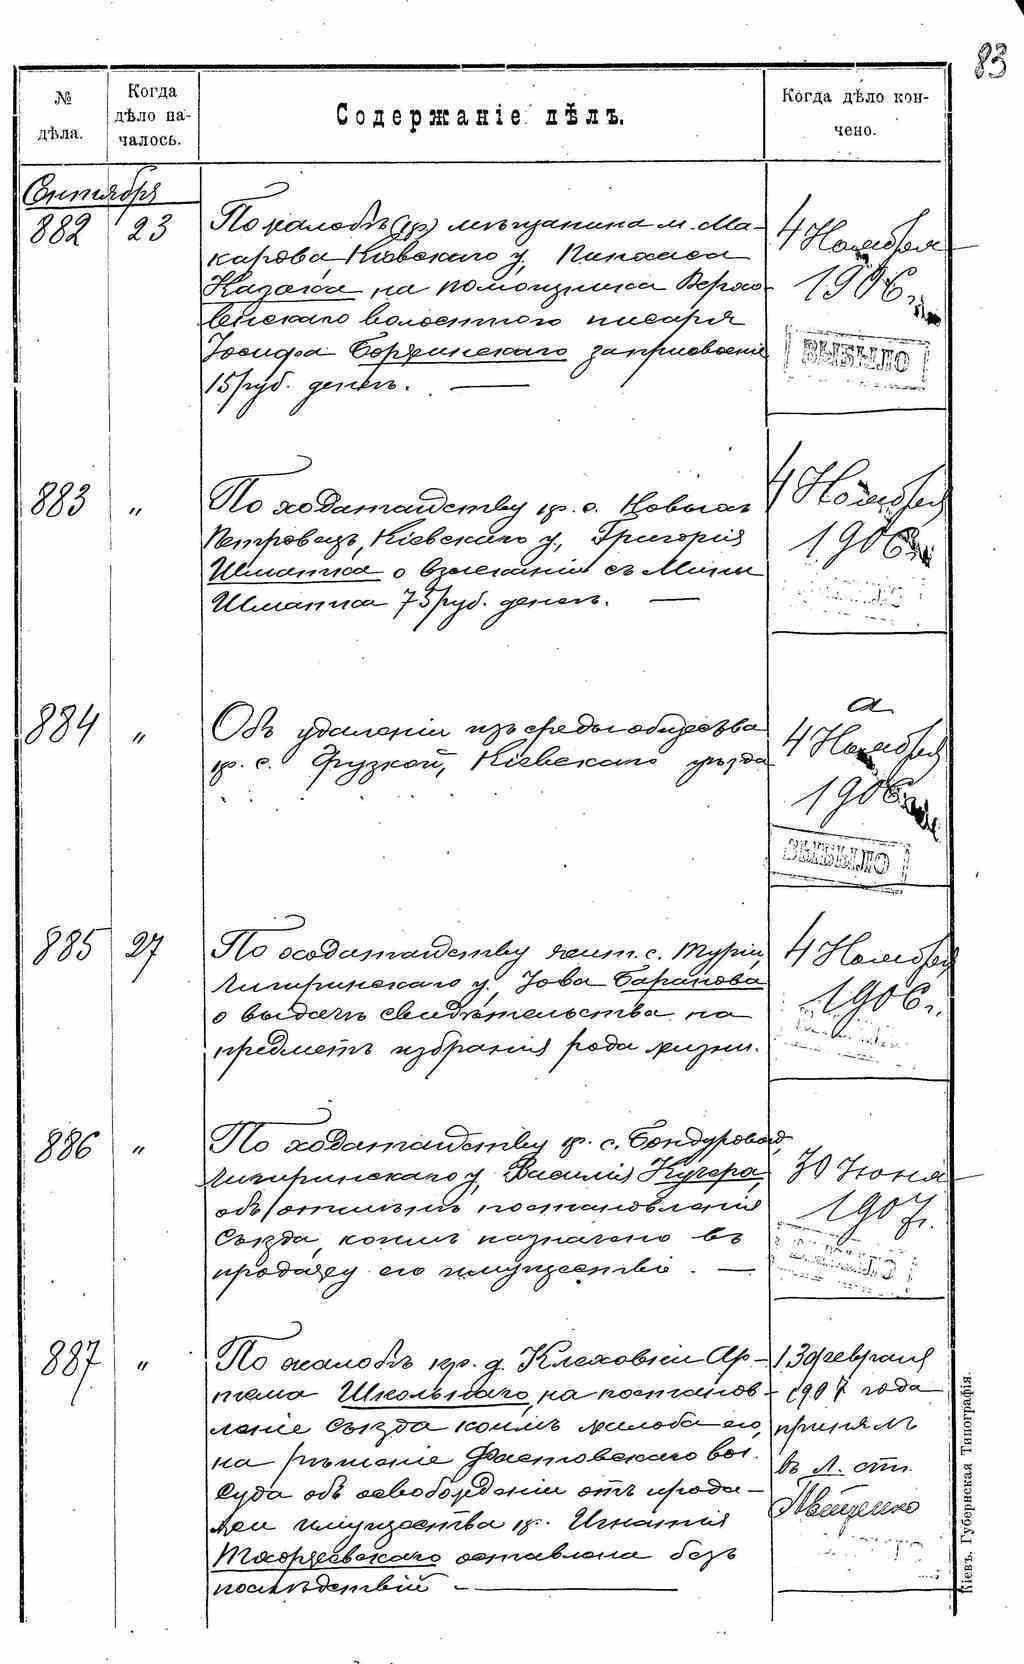 83
№ дѣла.
Когда дѣло на-
чалось.
Содержаніе дѣлъ.
Когда дѣло кон-
чено.
Сентября
882 23 По жалобѣ (кр) мѣщанина м. Ма-
карова, Кіевскаго у., Пинхаса
Казака на помощника Верхо-
венскаго волостного писаря
Іосифа за присвоеніе
15 руб. денегъ.
4 Ноября
1906 г.
ВЫБЫЛО
883 " По ходатайству кр. с. Новыхъ
Петровецъ, Кіевскаго у., Григорія
Шматка о взысканіи съ Мины
Шматка 75 руб. денегъ.
4 Ноября
1906
884 " Объ удаленіи изъ среды общества
кр. с. Фузкой, Кіевскаго уѣзда
4 Ноября
1906
ВЫБЫЛО
885 27 По ходатайству жит. с. Туріи,
Чигиринскаго у., Іова Баранова
о выдачѣ свидѣтельства на
предметъ избранія рода жизни.
4 Ноября
1906 г.
886 " По ходатайству кр. с. Бондуровой,
Чигиринскаго у., Василія Кучера,
объ отмѣнѣ постановленія
Съѣзда, коимъ назначено въ
продажу его имущество.
30 Іюня
1907 г.
887 " По жалобѣ кр. д. Клеховки Ар-
тема Школьнаго, на постанов-
леніе Съѣзда коимъ жалоба его,
на рѣшеніе Фастовскаго вол.
Суда объ освобожденіи отъ прода-
жи имущества кр. Игнатія
оставлена безъ
послѣдствій
13 февраля
1907 года
принялъ
въ Л. ст.
Кіевъ, Губернская Типографія.